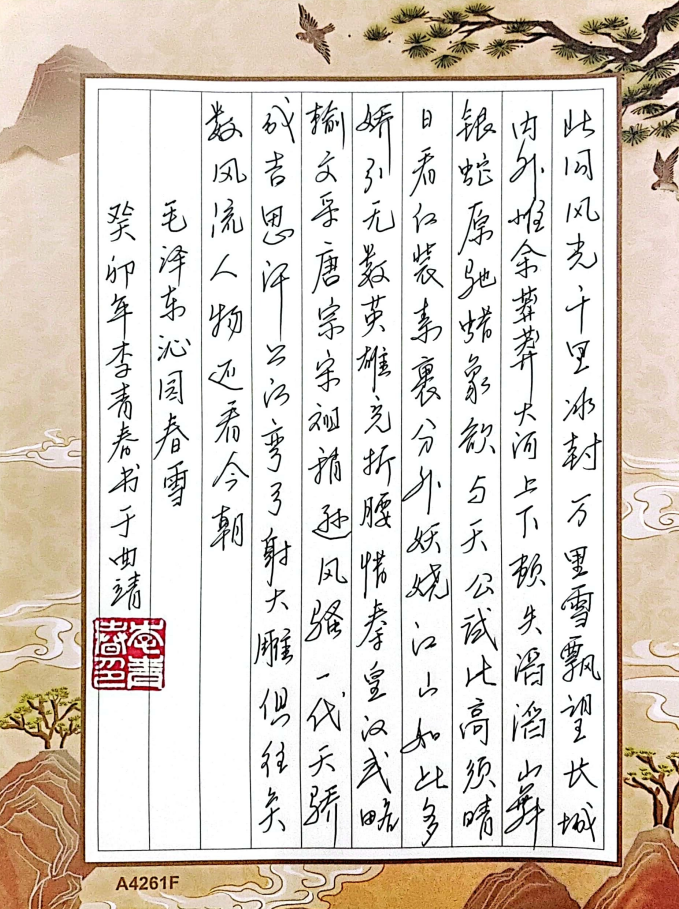 此同风光千里冰封万里雪飘望长城
内外惟余莽莽大河上下顿失滔滔山舞
银蛇原驰蜡象欲与天公试比高须晴
日看红装素裹分外妖娆江山如此多
娇引无数英雄竞折腰惜秦皇汉武略
输文采唐宗宋祖稍逊风骚一代天骄
成吉思汗只识弯弓射大雕俱往矣
数风流人物还看今朝
毛泽东沁园春雪
癸卯年李青春书于曲靖
李青春印
A4261F